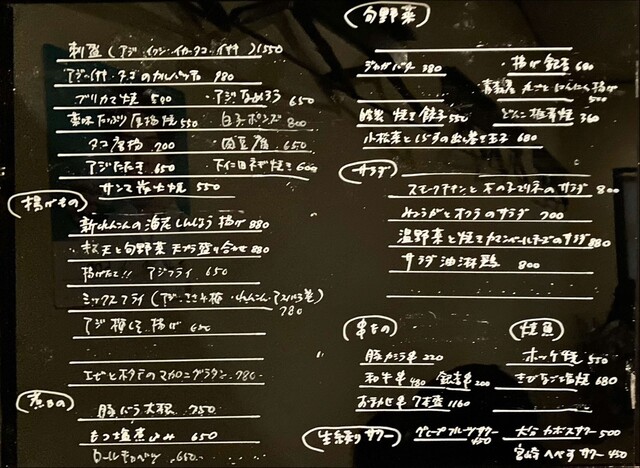 刺盛(アジ・イワシ・イカ・タコ・イサキ)1550
980
ブリカマ焼 500 ・アジなめろう 650
薬味たっぷり厚揚焼 550 白子ポンズ 800
タコ唐揚 700 ・肉豆腐 650
アジたたき 650 下仁田ネギ焼き 600
サンマ 焼 550
揚げもの
新れんこんの海老しんじょう揚げ 880
松茸と旬野菜天プラ盛り合せ 880
揚げたて!! アジフライ 650
ミックスフライ(アジ・ れんこん・アスパラ巻)
780
アジ梅しそ揚げ 650
エビとホタテのマカロニグラタン 780
煮もの
豚バラ大根 750
もつ塩煮込み 650
ロールキャベツ 650
旬野菜
ジャガバター 380 ・揚げ銀杏 680
青森産 丸ごとにんにく揚げ
500
焼き餃子 550 どんこ椎茸焼 360
小松菜としらすの出し巻き玉子 680
サラダ
スモークチキンと木の子マリネのサラダ 800
みょうがとオクラのサラダ 700
温野菜と焼きカマンベールチーズのサラダ 880
サラダ油淋鶏 800
串もの
豚カシラ串 220
和牛串 480 銀杏串 200
おまかせ串 7本盛 1160
焼魚
ホッケ焼 550
きびなご塩焼 680
生絞りサワー
グレープフルーツサワー 450
大分カボスサワー 500
宮崎へべすサワー 450